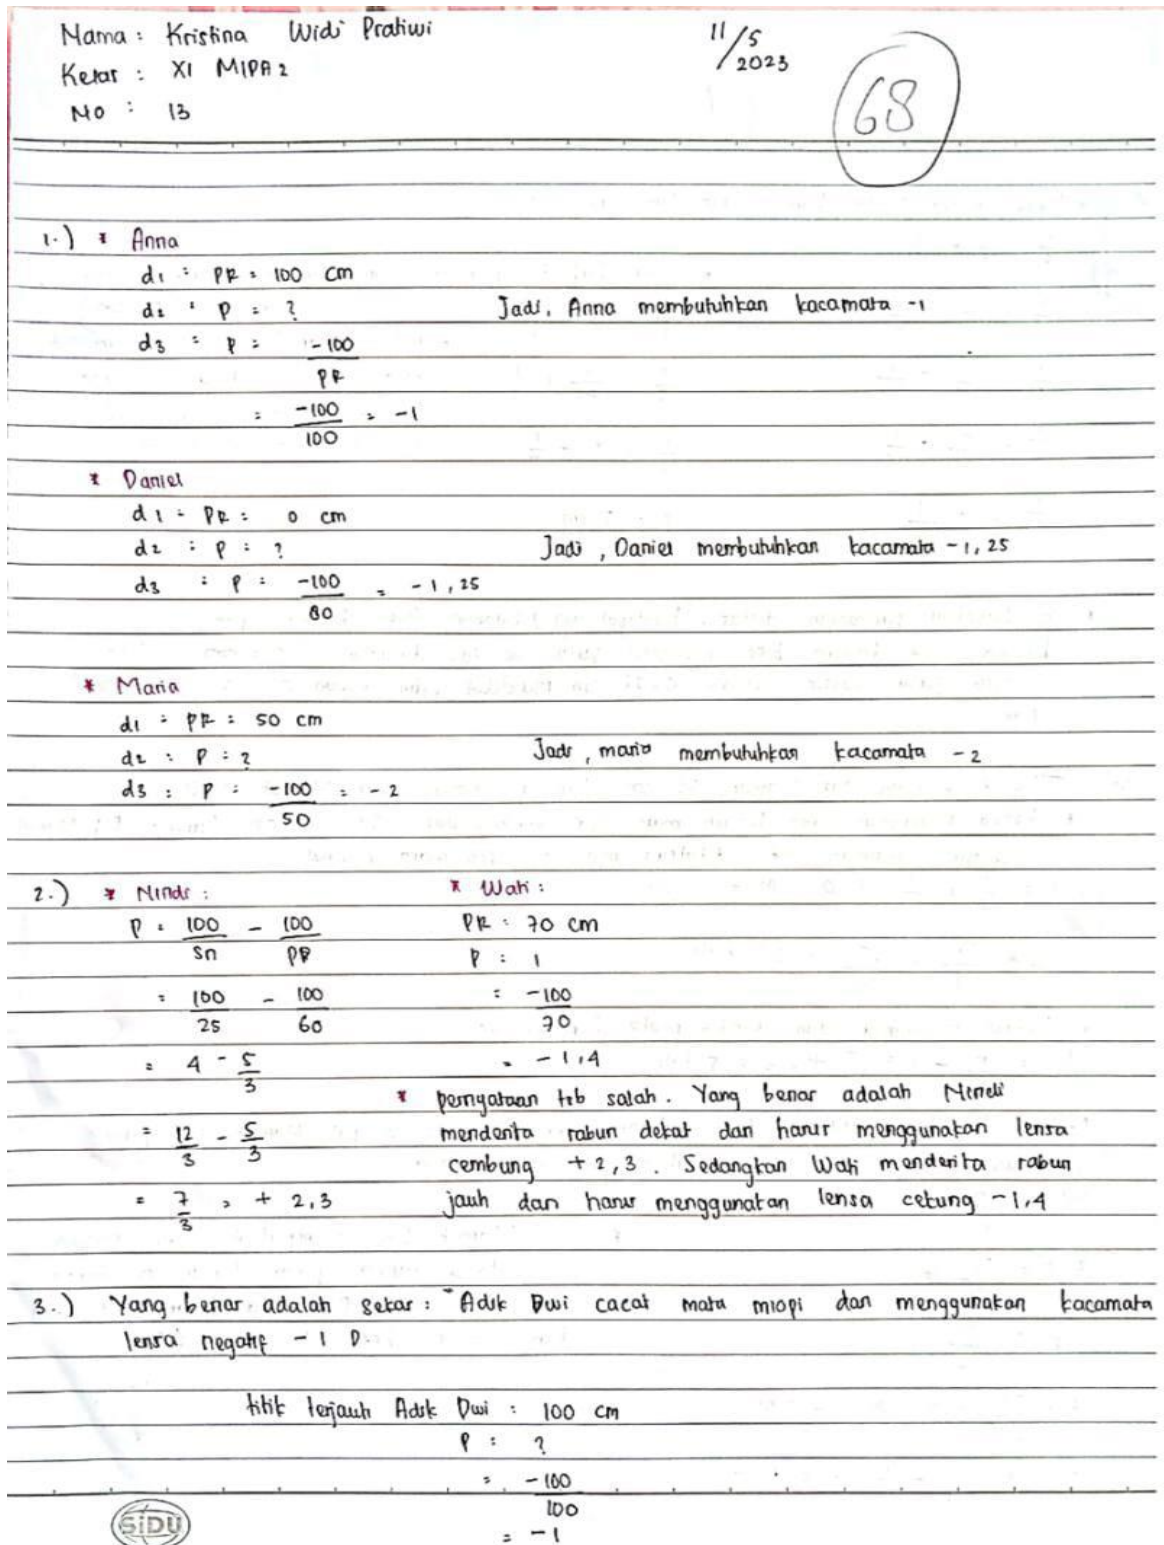 Nama : Kristina Widi Pratiwi
11/5
2023
Kelas : XI MIPA 2
No : 13
68
1.) * Anna
d1 : PR = 100 cm
d2 : P = ?
Jadi, Anna membutuhkan kacamata -1
d3 : P = -100
PR
= -100 = -1
100
* Daniel
d1 = PR = 0 cm
d2 : P = ?
Jadi, Daniel membutuhkan kacamata -1,25
d3 : P = -100 = -1,25
80
* Maria
d1 : PR = 50 cm
d2 : P = ?
Jadi, maria membutuhkan kacamata -2
d3 : P = -100 = -2
50
2.) * Nindi :
P = 100 - 100
Sn PR
= 100 - 100
25 60
= 4 - 5
3
= 12 - 5
3 3
= 7 = + 2,3
3
* Wati :
PR = 70 cm
P : 1
= -100
70
= -1,4
* pernyataan tsb salah. Yang benar adalah Nindi
menderita rabun dekat dan harus menggunakan lensa
cembung +2,3. Sedangkan Wati menderita rabun
jauh dan harus menggunakan lensa cekung -1,4
3.) Yang benar adalah Sekar : "Adik Dwi cacat mata miopi dan menggunakan kacamata
lensa negatif -1 D.
titik terjauh Adik Dwi : 100 cm
P = ?
= -100
100
= -1
SiDU